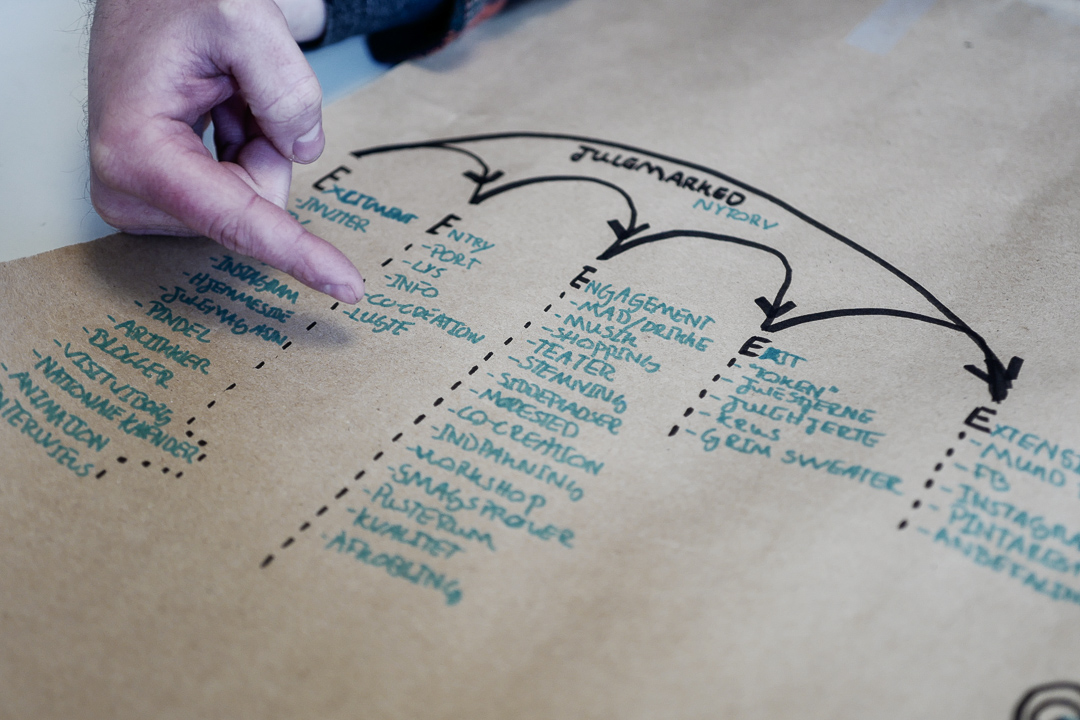 JULEMARKED
NYTORV
EXCITEMENT
-INVITER
-INSTAGRAM
-HJEMMESIDE
-JULEMAGASIN
-PINDEL
-ARTIKKER
-BLOGGER
-VISITVIBORG
-NATIONNE KALENDER
-ANIMATION
ENTRY
-PORT
-LYS
-INFO
-CO-CREATION
-LUGTE
ENGAGEMENT
-MAD/DRIKKE
-MUSIK
-SHOPPING
-TEATER
-STEMNING
-SIDDEPLADSER
-MØDESTED
-CO-CREATION
-INDPAKNING
-WORKSHOP
-SMAGSPRØVER
-PUSTERUM
-KVALITET
-AFKOBLING
EXIT
-"TOKEN"
-JULESTJERNE
-JULEHJERTE
-KRUS
-GRIM SWEATER
EXTENSI
-MUND T
-FB
-INSTAGRA
-PINTARES
-ANBEFALIN